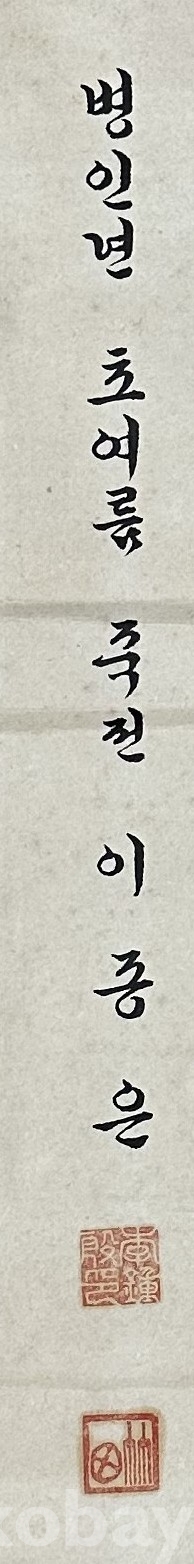 병인년 초여름 죽전 이종은
李鍾殷印
竹田
kobay